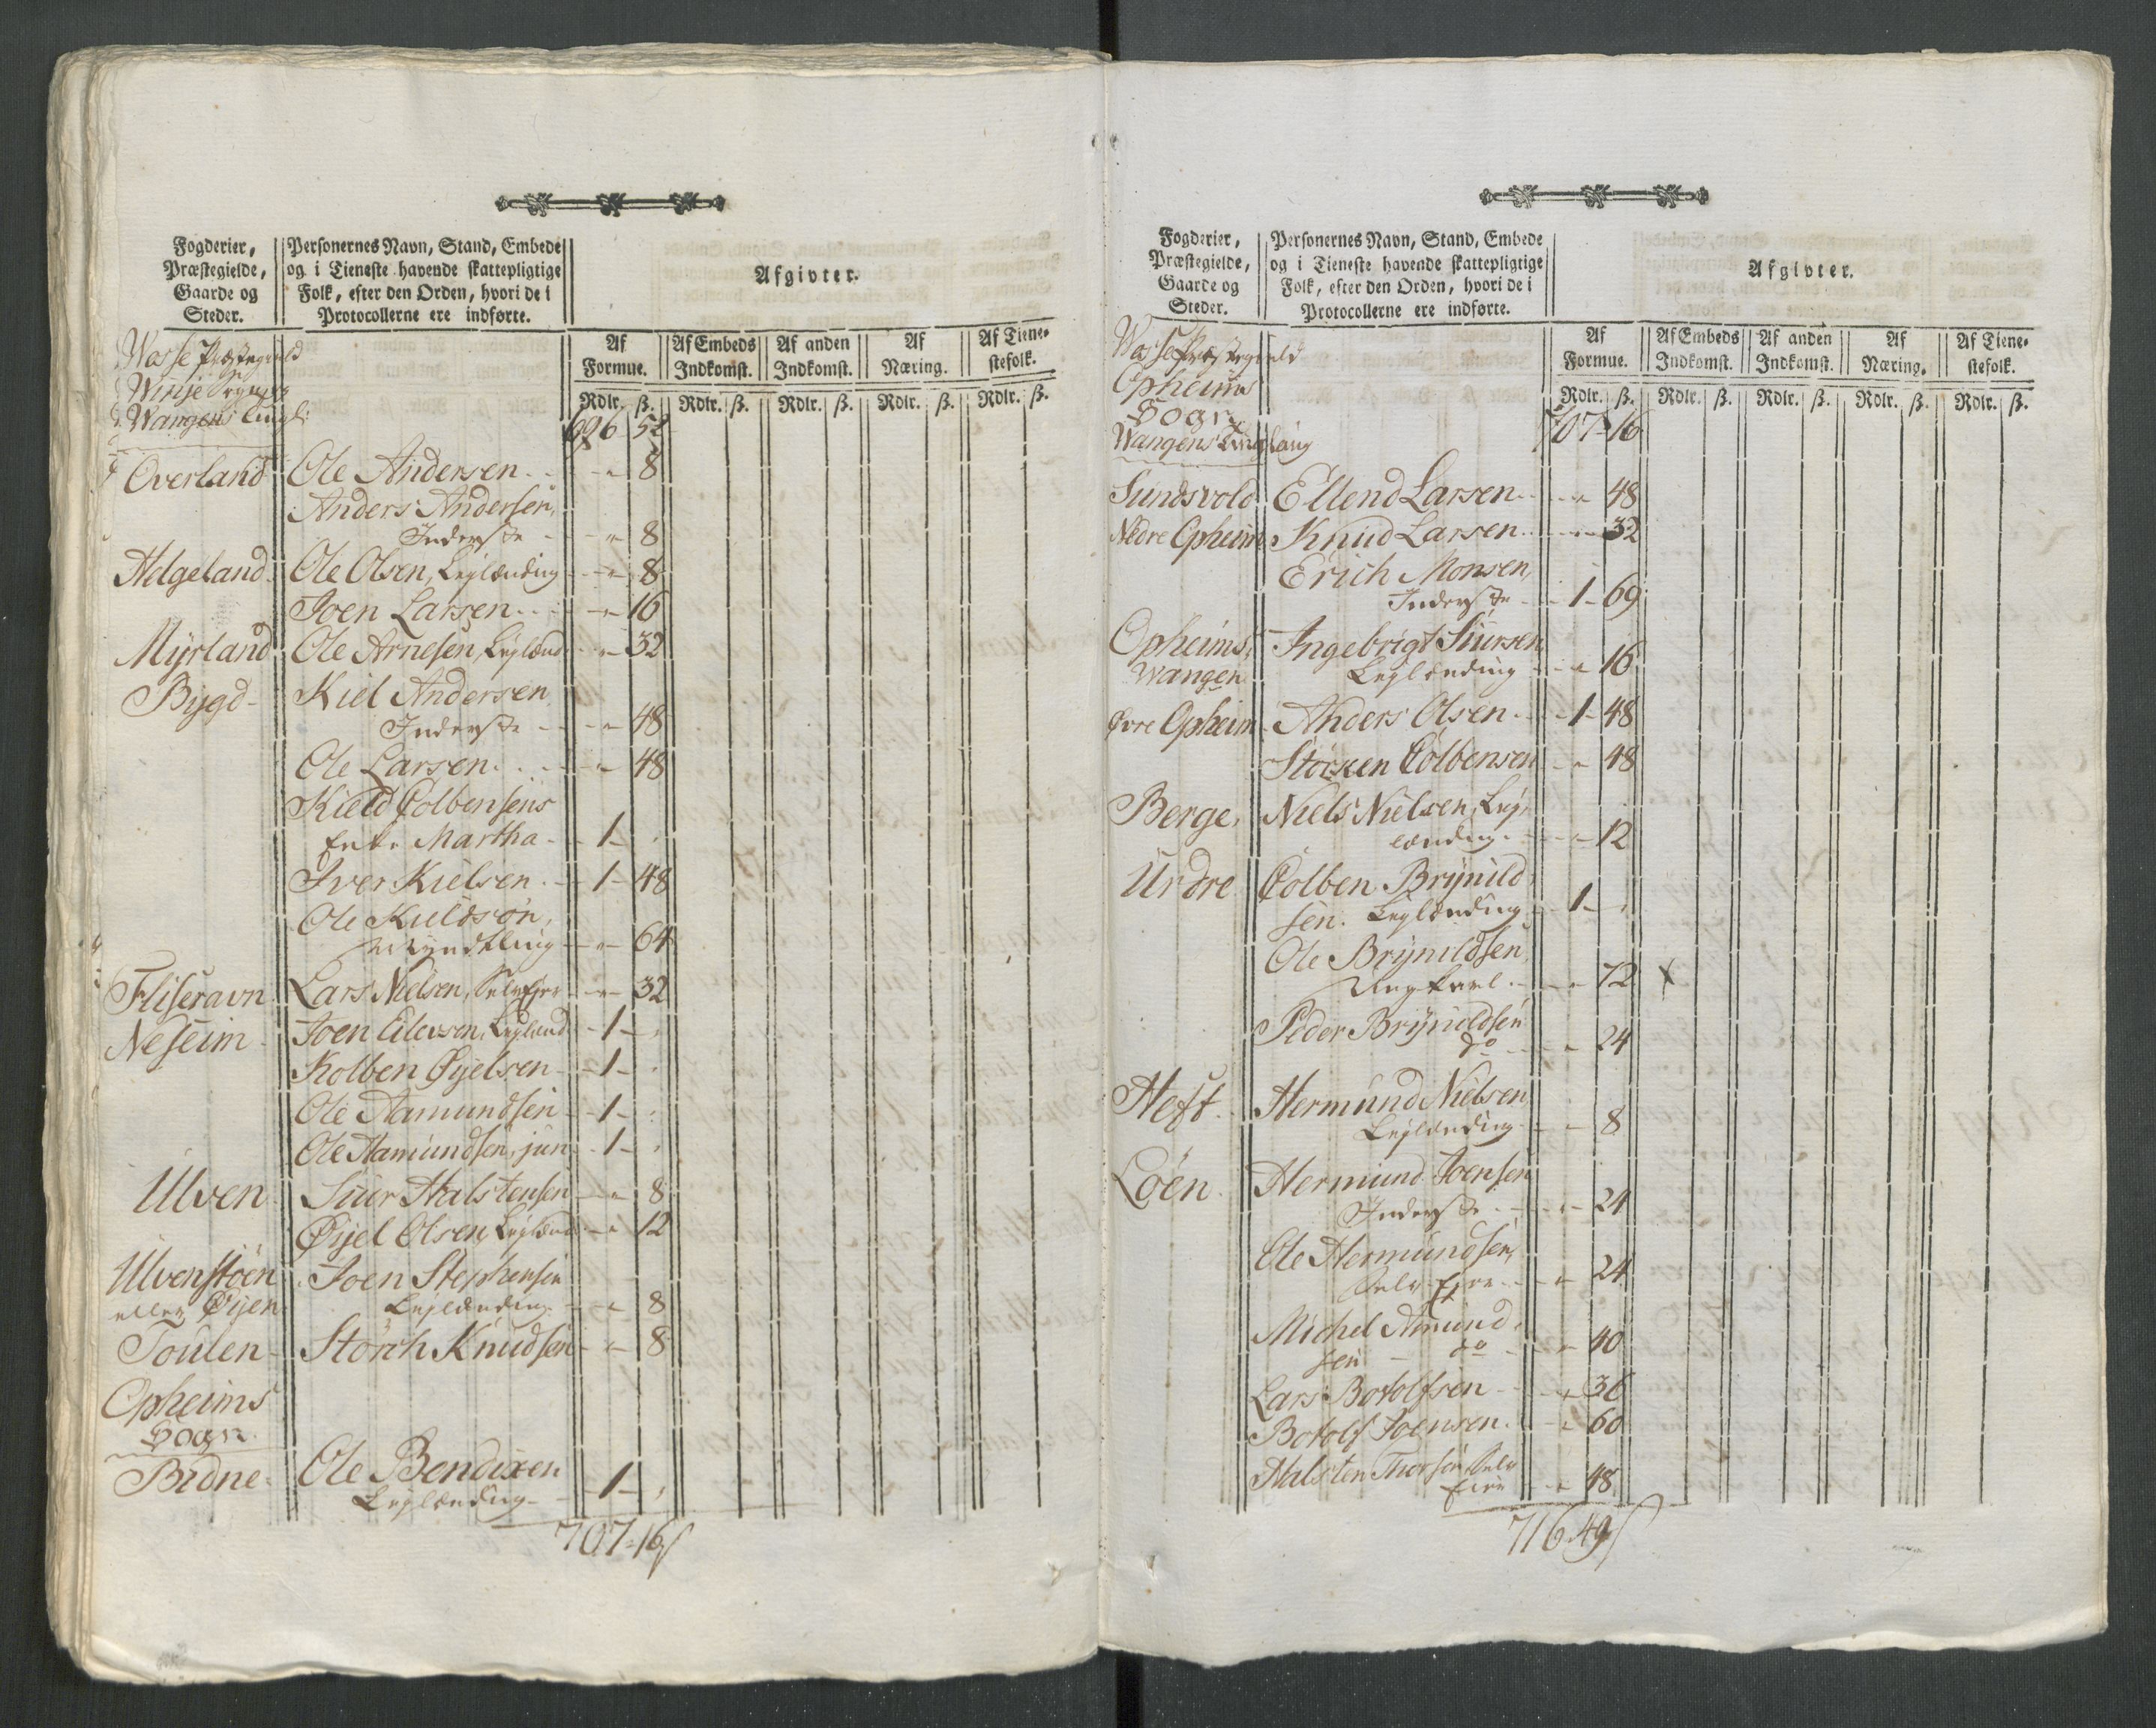 Fogderier,
Præstegielde,
Gaarde og
Steder.
Personernes Navn, Stand, Embede
og i Tieneste havende skattepligtige
Folk, efter den Orden, hvori de i
Protocollerne ere indførte.
Afgivter.
Af Formue. Af Embeds Indkomst. Af anden Indkomst. Af Næring. Af Tiene-stefolk.
Rdlr. ß. Rdlr. ß. Rdlr. ß. Rdlr. ß. Rdlr. ß.
Wosse Præstegield
Winje Sogn og
Wangens Tingl:
696 52
Overland Ole Andersen - " 8
Anders Andersen,
Inderste - " 8
Helgeland Ole Olsen, Leylænding - " 8
Joen Larsen - " 16
Myrland Ole Arnesen, Leylænd - " 32
Bygd - Kiel Andersen
Inderste - " 48
Ole Larsen - " 48
Kield Colbensens
Enke Martha - 1 -
Iver Kielsen - 1 - 48
Ole Kieldsøn,
Myndtling - " 64
Fliseravn Lars Nielsen, Selvejer - " 32
Neseim Joen Eilevsen, Leylænd - 1 -
Kolben Øyelsen - 1 -
Ole Aamundsen - 1 -
Ole Aamundsen, jun - 1 -
Ulven Siur Halstensen - " 8
Øyel Olsen, Leylænd - " 12
Ulvenstøen Joen Stephensen
eller Øyen Leylænding - " 8
Toulen - Störch Knudsen - " 8
Opheims
Sogn
Bidne - Ole Bendixen
Leylænding - 1 -
707 - 16 ß
Fogderier,
Præstegielde,
Gaarde og
Steder.
Personernes Navn, Stand, Embede
og i Tieneste havende skattepligtige
Folk, efter den Orden, hvori de i
Protocollerne ere indførte.
Afgivter.
Af Formue. Af Embeds Indkomst. Af anden Indkomst. Af Næring. Af Tiene-stefolk.
Rdlr. ß. Rdlr. ß. Rdlr. ß. Rdlr. ß. Rdlr. ß.
Wosse Præstegield
Opheims
Sogn
Wangens Tinglaug
707 - 16
Sundsvold Ellend Larsen - " 48
Nedre Opheim Knud Larsen - " 32
Erich Monsen,
Inderste - 1 - 69
Opheims Ingebrigt Siursen
Wangen Leylænding - " 16
Øvre Opheim Anders Olsen - 1 - 48
Störken Colbensen - " 48
Berge, Niels Nielsen, Ley-
lænding - " 12
Urdre Colben Brynild
sen. Leylænding - 1 -
Ole Brynildsen,
Ungkarl - " 72 x
Peder Brynildsen
do - " 24
Heft. Hermund Nielsen
Leylænding - " 8
Løen. Hermund Joensen
Inderste - " 24
Ole Hermundsen,
Selv Ejere - " 24
Michel Amund-
sen - do - " 40
Lars Botolfsen - " 36
Botolf Joensen - " 60
Halsten Thorsen, Selv
Eier - " 48
716 49 ß